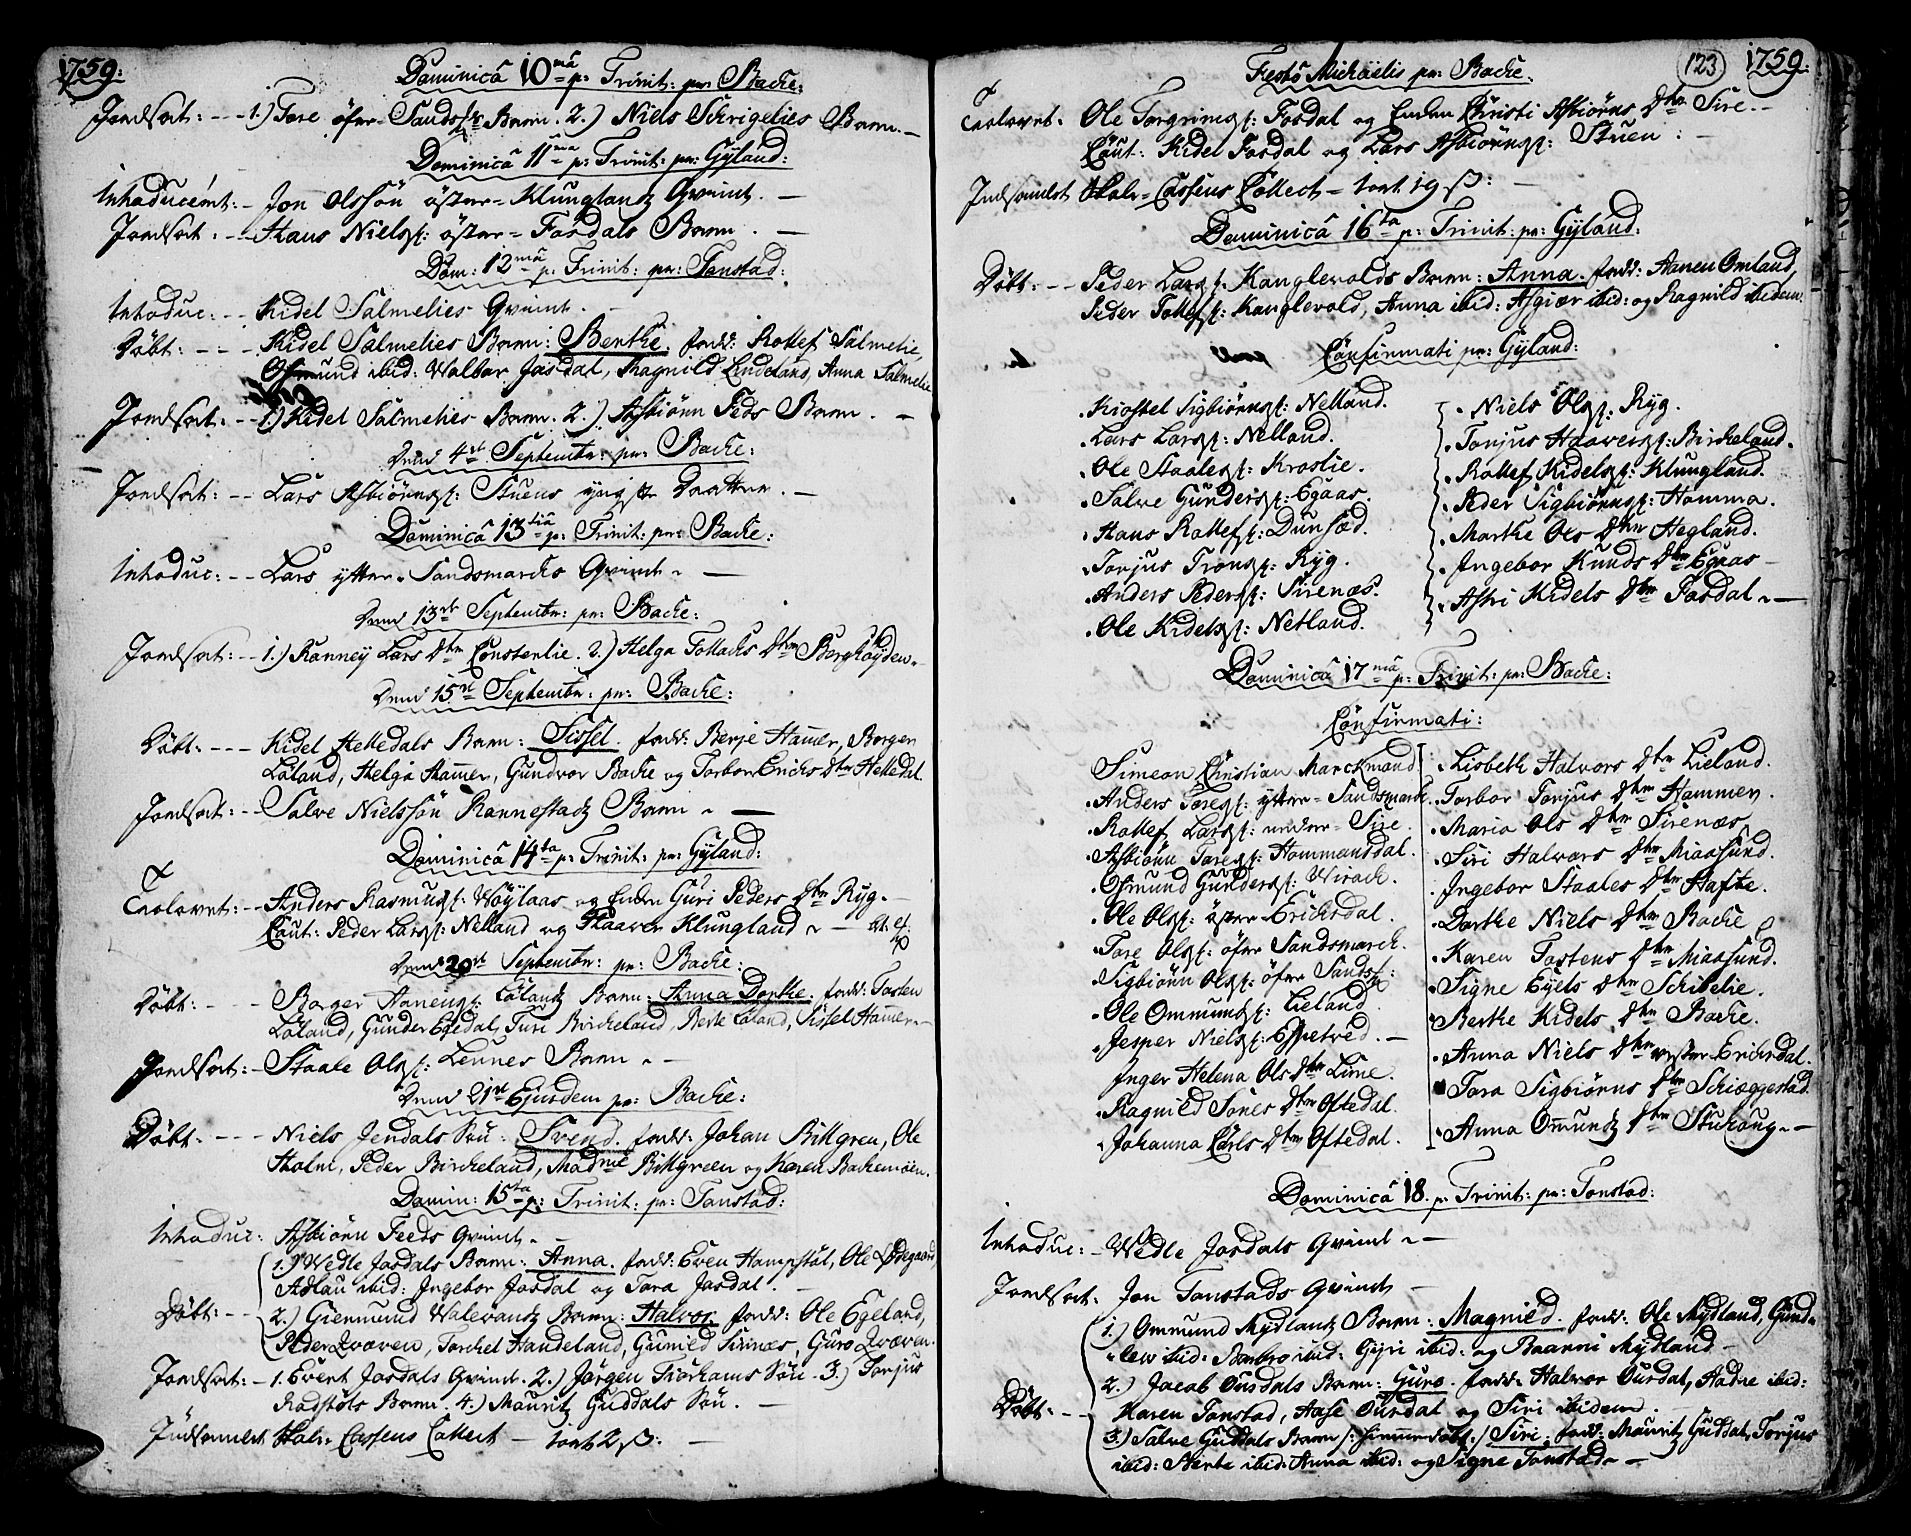 1759.
Dominicâ 10mâ p: Trinit: pr: Backe:
Jordsat: -- 1.) Tore öfre-Sandsm: Barn. 2.) Niels Schrigelies Barn. -
Dominicâ 11ma p: Trinit: pr: Gyland:
Introducerit: - Jon Olssön öster-Klunglands Qvinde. -
Jordsat: -- Hans Niels: öster-Fosdals Barn. -
Dom: 12mâ p: Trinit: pr: Tonstad:
Introduc: -- Kidel Salmelies Qvinde. -
Döbt: --- Kidel Salmelies Barn: Benthe. fadd: Rollef Salmelie,
Osmund ibid: Walbor Josdal, Magnild Lindeland, Anna Salmelie
Jordsat: -- 1.) Kidel Salmelies Barn. 2.) Asbiörn Feds Barn. -
Dend 4de Septembr: pr: Backe:
Jordsat: -- Lars Asbiörns: Stuens yngste Daatter. -
Dominicâ 13tiâ p: Trinit: pr: Backe:
Introduc: -- Lars ytter-Sandsmarcks Qvinde. -
Dend 13de Septembr: pr: Backe:
Jordsat: -- 1.) Ranney Lars Dtr Consterlie. 2.) Helga Tollacks Dtr Berghöyden.
Dend 15de Septembr: pr: Backe:
Döbt: --- Kidel Helledals Barn: Sissel. fadd: Berje Hamer, Borger
Löland, Helga Hamer, Gundvor Backe og Torbor Erichs Dtr Helledal.
Jordsat: -- Salve Nielssön Rannestads Barn. -
Dominicâ 14ta p: Trinit: pr: Gyland:
Trolovet: -- Anders Rasmus: Höylaas og Enken Guri Peders Dtr Ryg. -
Caut: Peder Lars: Nelland og Haaver Klungland. -
Dend 20de Septembr: pr: Backe:
Döbt: -- Borger Aanens: Lölands Barn: Anna Dorthe. fadd: Tosten
Löland, Gunder Egedal, Turi Birckeland, Berte Löland, Sissel Hamer. -
Jordsat: - Staale Ols: Leunes Barn. -
Dend 21de Ejusdem pr: Backe:
Döbt: --- Niels Jendals Sön: Svend. fadd: Johan Billgren, Ole
Holm, Peder Birckeland, Madme Billgreen og Karen Backemöen.
Domin: 15ta p: Trinit: pr: Tonstad:
Introduc: Asbiörn Feeds Qvinde. -
1.) Wedle Josdals Barn: Anna. fadd: Even Hompstöl, Ole Ödegaard,
Adlau ibid: Ingebor Josdal og Tora Josdal. -
Döbt: -- 2.) Giermund Walevands Barn: Halvor. fadd: Ole Egeland,
Peder Qvæven, Torchel Handeland, Gunild Sirnæs, Guro Qvæven.
Jordsat: - 1. Evert Josdals Qvinde. 2.) Jörgen Fiörhams Sön. 3.) Torjus
Rodstöls Barn. 4.) Mauritz Guddals Sön. -
Indsamlet Skole-Cassens Collect - 2 ß: -
123
1759.
Festô Michaelis pr: Backe.
Trolovet: Ole Torgrims: Fosdal og Enken Christi Asbiörns Dtr Sire. -
Caut: Kidel Fosdal og Lars Asbiörns: Stuen: -
Indsamlet Skole-Cassens Collect - 19 ß: -
Dominicâ 16ta p: Trinit: pr: Gyland:
Döbt: -- Peder Lars: Kanglevolds Barn: Anna. fadd: Aanen Omland,
Peder Tollefs: Kanglevold, Anna ibid: Asgiær ibid: og Ragnild ibidem.
Confirmati pr: Gyland:
Kiostel Sigbiörns: Nelland.
Lars Lars: Nelland.
Ole Staales: Kroslie.
Salve Gunders: Egaas.
Hans Rollefs: Dunsæd.
Torjus Trons: Ryg.
Anders Peders: Sirenæs.
Ole Kidels: Netland.
Niels Ols: Ryg.
Torjus Haavers: Birckeland.
Rollef Kidels: Klungland.
Peder Sigbiörns: Hamma.
Marthe Ols Dtr Hegland.
Ingebor Knuds Dtr Egaas -
Astri Kidels Dtr Fosdal. -
Dominicâ 17mâ p: Trinit: pr: Backe:
Confirmati:
Simeon Christian Marckmand
Anders Tores: ytter-Sandsmarck.
Rollef Lars: neder-Sire.
Asbiörn Tores: Hommansdal.
Osmund Gunders: Wirack.
Ole Ols: öster Erichsdal.
Tore Ols: öfre Sandsmarck.
Sigbiörn Ols: öfre Sandsm:
Ole Ommunds: Lieland.
Jesper Niels: Espetved. -
Inger Helena Ols Dtr Lime.
Ragnild Tores Dtr Oftedal.
Johanna Carls Dtr Oftedal.
Lisbeth Halvors Dtr Lieland.
Torbor Torjus Dtr Hammer.
Maria Ols Dtr Sirenæs.
Siri Halvors Dtr Miaasund.
Ingebor Staales Dtr Hafte.
Dorthe Niels Dtr Backe
Karen Tostens Dtr Miaasund.
Signe Eyels Dtr Schibelie.
Berthe Kidels Dtr Backe.
Anna Niels Dtr vester Erichsdal.
Tora Sigbiörns Dtr Schieggestad
Anna Omunds Dtr Stuhoug. -
Dominicâ 18. p: Trinit: pr: Tonstad:
Introduc: - Wedle Josdals Qvinde. -
Jordsat: Jon Tonstads Qvinde -
1.) Ommund Mydlands Barn: Magnild. fadd: Ole Mydland, Gund-
lew ibid: Barbro ibid: Gyri ibid: og Raanni Mydland -
2.) Jacob Ousdals Barn: Guro. fadd: Halvor Ousdal, Aadne ibid:
Döbt: -- Karen Tonstad, Aase Ousdal og Siri ibidem.
3.) Salve Guddals Barn /: hiemmedöbt :/ Siri. fadd: Mauritz Guddal, Torjus
ibid: Berte ibid: Anna ibid: og Signe Tonstad. -